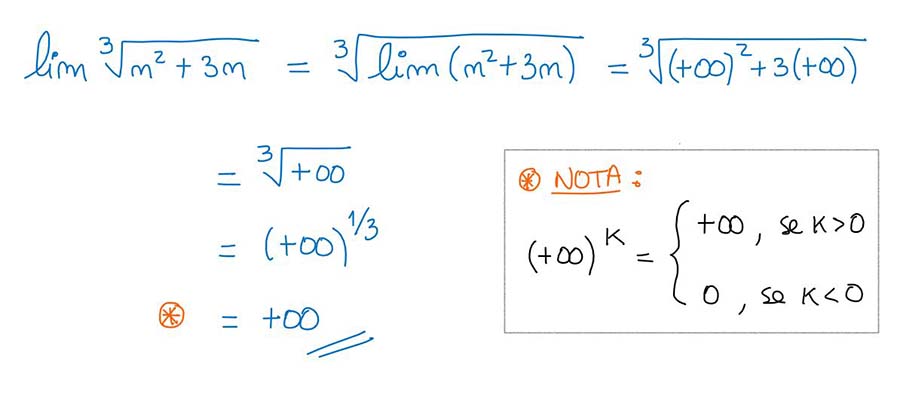 lim ∛(m² + 3m) = ∛(lim (m² + 3m)) = ∛((+∞)² + 3(+∞))
= ∛(+∞)
= (+∞)^(1/3)
⊛ = +∞
⊛ NOTA :
(+∞)^K = { +∞ , se K > 0
0 , se K < 0